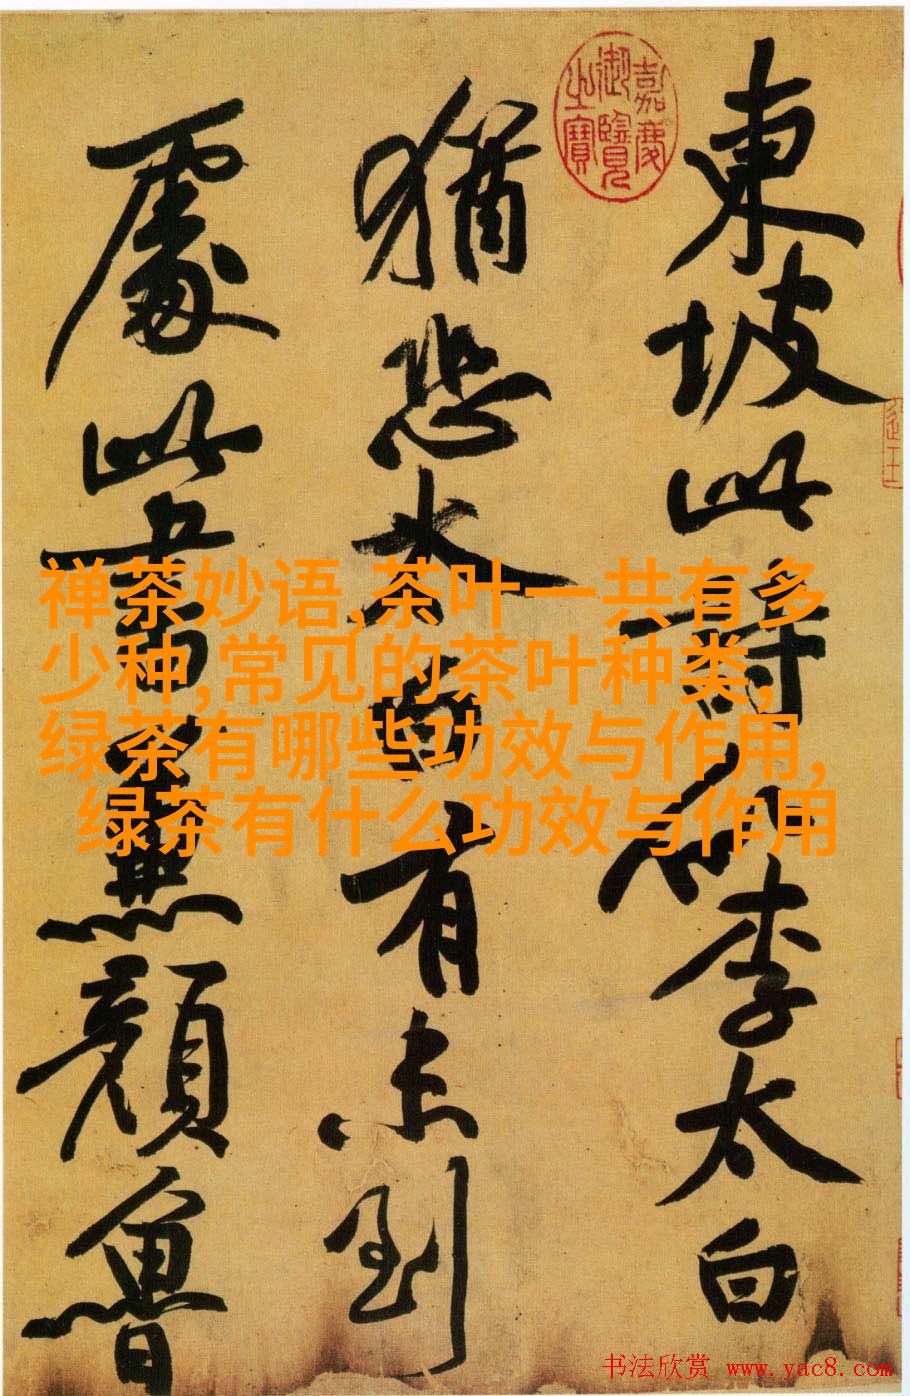 東坡此詩似李太白
猶恐太白有未到
處此書兼顏魯
嘉慶
御覽
之寶
禅茶妙语,茶叶一共有多
少种,常见的茶叶种类,
绿茶有哪些功效与作用,
绿茶有什么功效与作用
书法欣赏 www.yac8.com